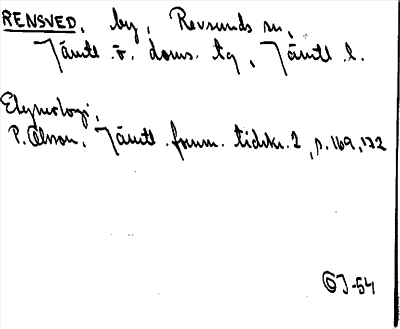 RENSVED, by, Revsunds sn,
Jämtl. ö. doms. tg, Jämtl. l.
Etymologi,
P. Olsson, Jämtl. fornm. tidskr. 2, s. 169, 172
GJ-54